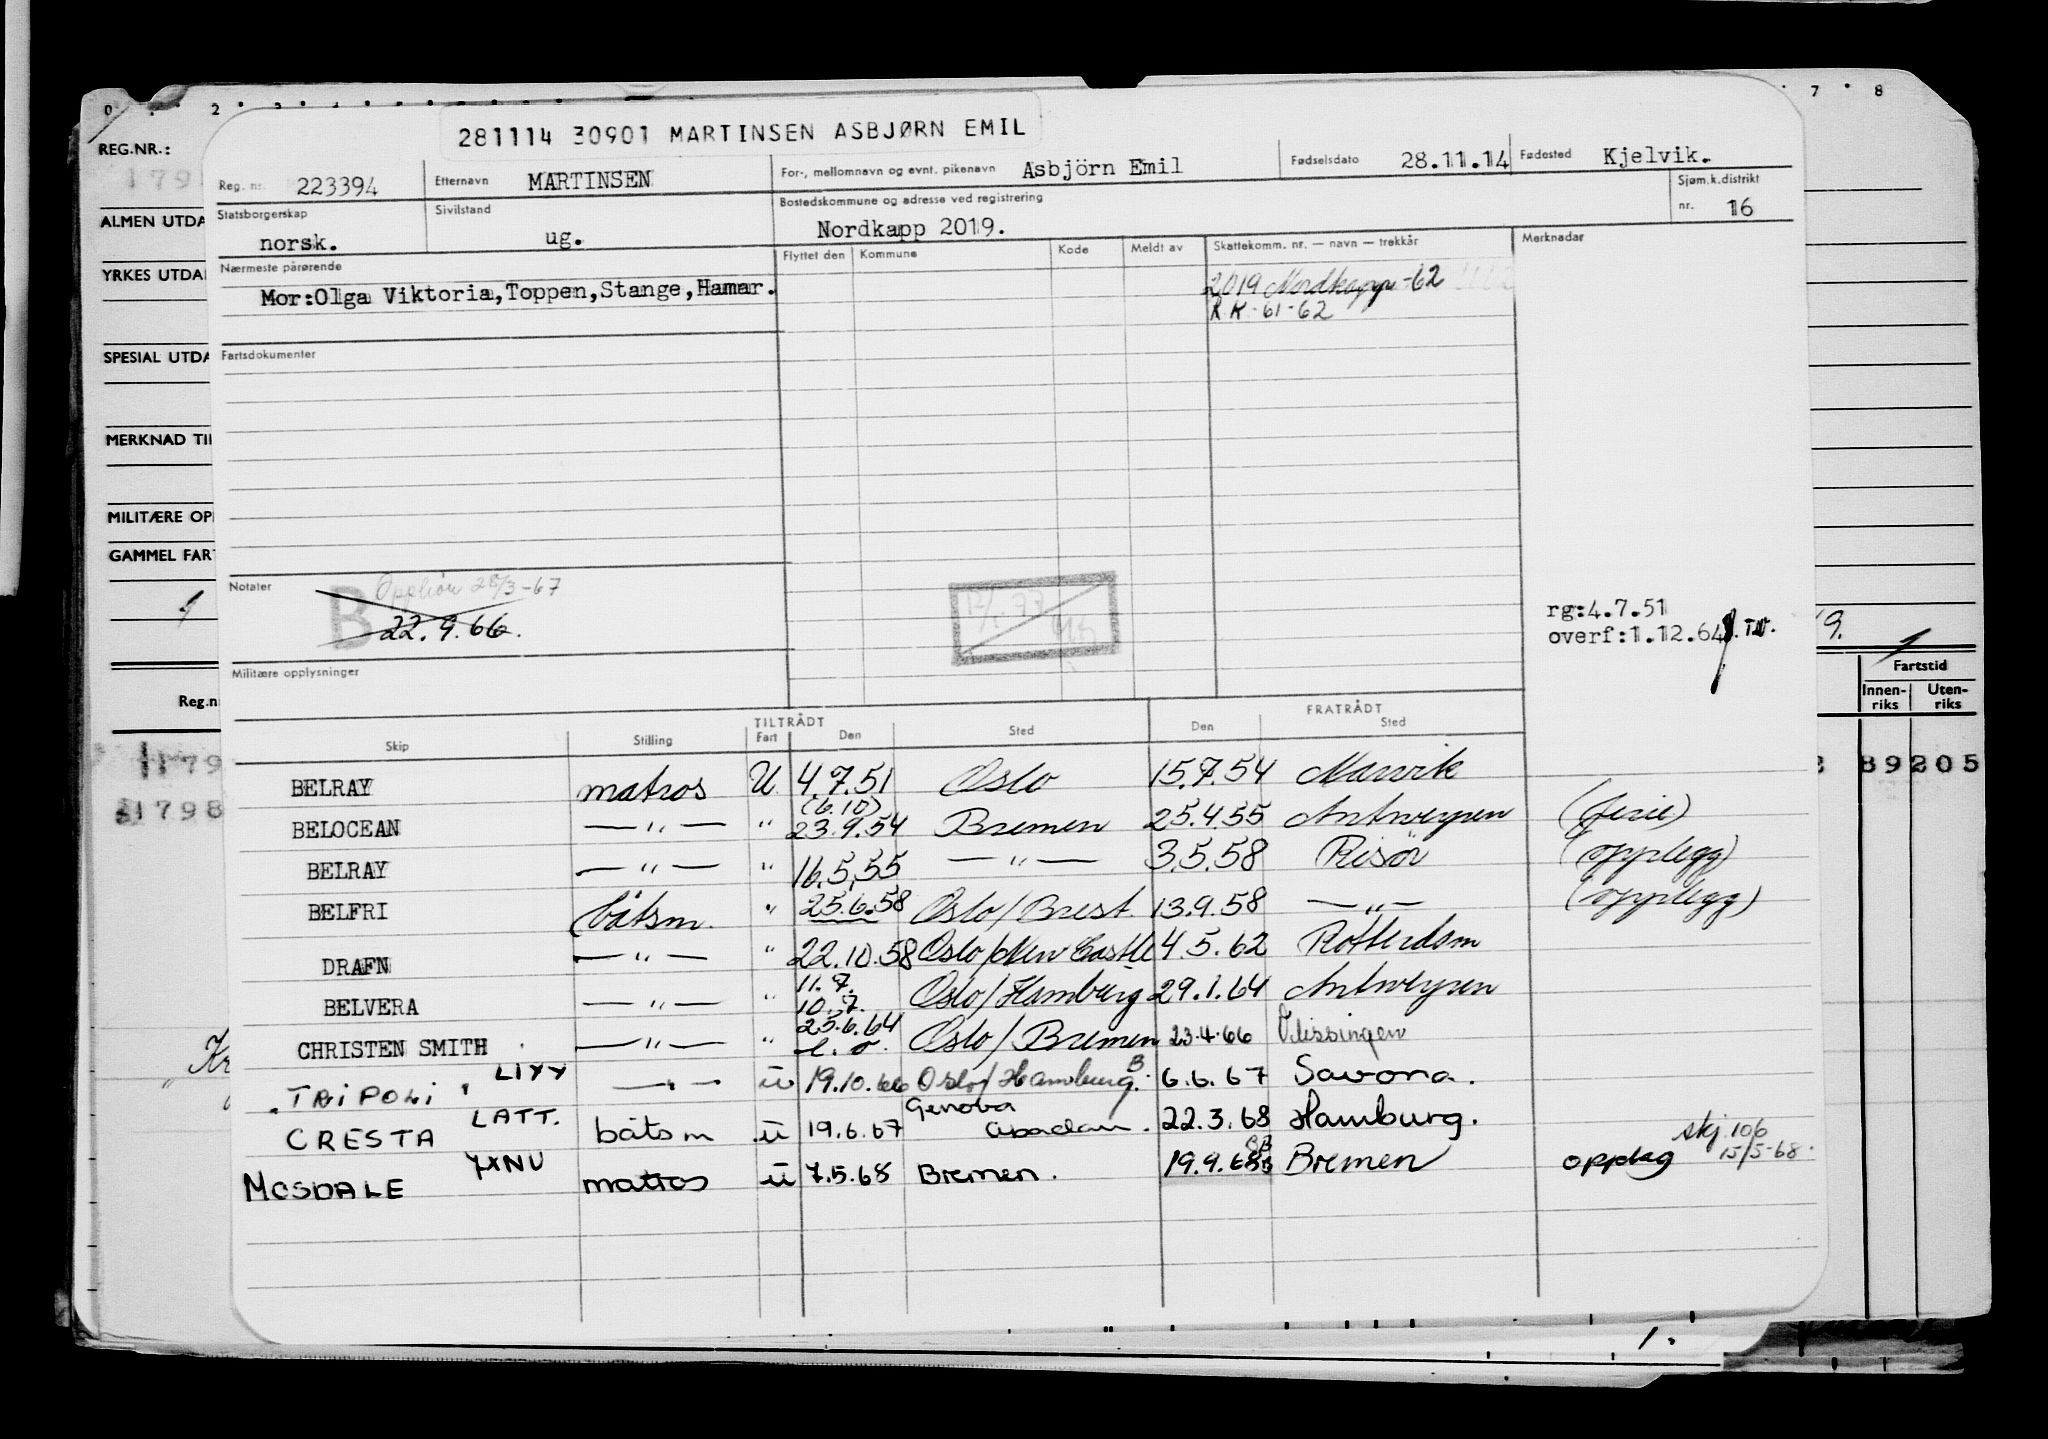 281114 30901 MARTINSEN ASBJØRN EMIL
0 2 3 7 8
REG.NR.:
ALMEN UTDA
YRKES UTDA
SPESIAL UTDA
MERKNAD TI
MILITÆRE OP
GAMMEL FAR
Reg.n
1798
Reg. nr. 223394 Etternavn MARTINSEN For-, mellomnavn og evnt. pikenavn Asbjörn Emil Fødselsdato 28.11.14 Fødested Kjelvik.
Statsborgerskap norsk. Sivilstand ug. Bostedskommune og adresse ved registrering Nordkapp 2019. Sjøm.k.distrikt nr. 16
Nærmeste pårørende Flyttet den Kommune Kode Meldt av Skattekomm. nr. — navn — trekkår Merknader
Mor:Olga Viktoria,Toppen,Stange,Hamar. 2019 Nordkapp -62
R.K - 61-62
Fartsdokumenter
Notater
Opphör 28/3-67
B 22.9.66.
rg:4.7.51
overf:1.12.64
Militære opplysninger
Fartstid
Innen-riks Uten-riks
89205
TILTRÅDT FRATRÅDT
Skip Stilling Fart Den Sted Den Sted
BELRAY matros U 4.7.51 Oslo 15.7.54 Narvik
(6.10)
BELOCEAN — " — " 23.9.54 Bremen 25.4.55 Antwerpen (ferie)
BELRAY — " — " 16.5.55 — " — 3.5.58 Risør (opplegg)
BELFRI båtsm. " 25.6.58 Oslo/Brest 13.9.58 — " — (opplegg)
DRAFN — " — " 22.10.58 Oslo/New Castle 4.5.62 Rotterdam
11.7.
BELVERA — " — " 10.7. Oslo/Hamburg 29.1.64 Antwerpen
25.6.64
CHRISTEN SMITH — " — " Oslo/Bremen 23.4.66 Vlissingen
TRIPOLI LIYY — " — ü 19.10.66 Oslo/Hamburg. B 6.6.67 Savona.
CRESTA LATT. båtsm ü 19.6.67 Genova Abadan. 22.3.68 Hamburg.
skj. 106
15/5-68.
MOSDALE matros ü 7.5.68 Bremen. 19.9.68 Bremen opplag
1.